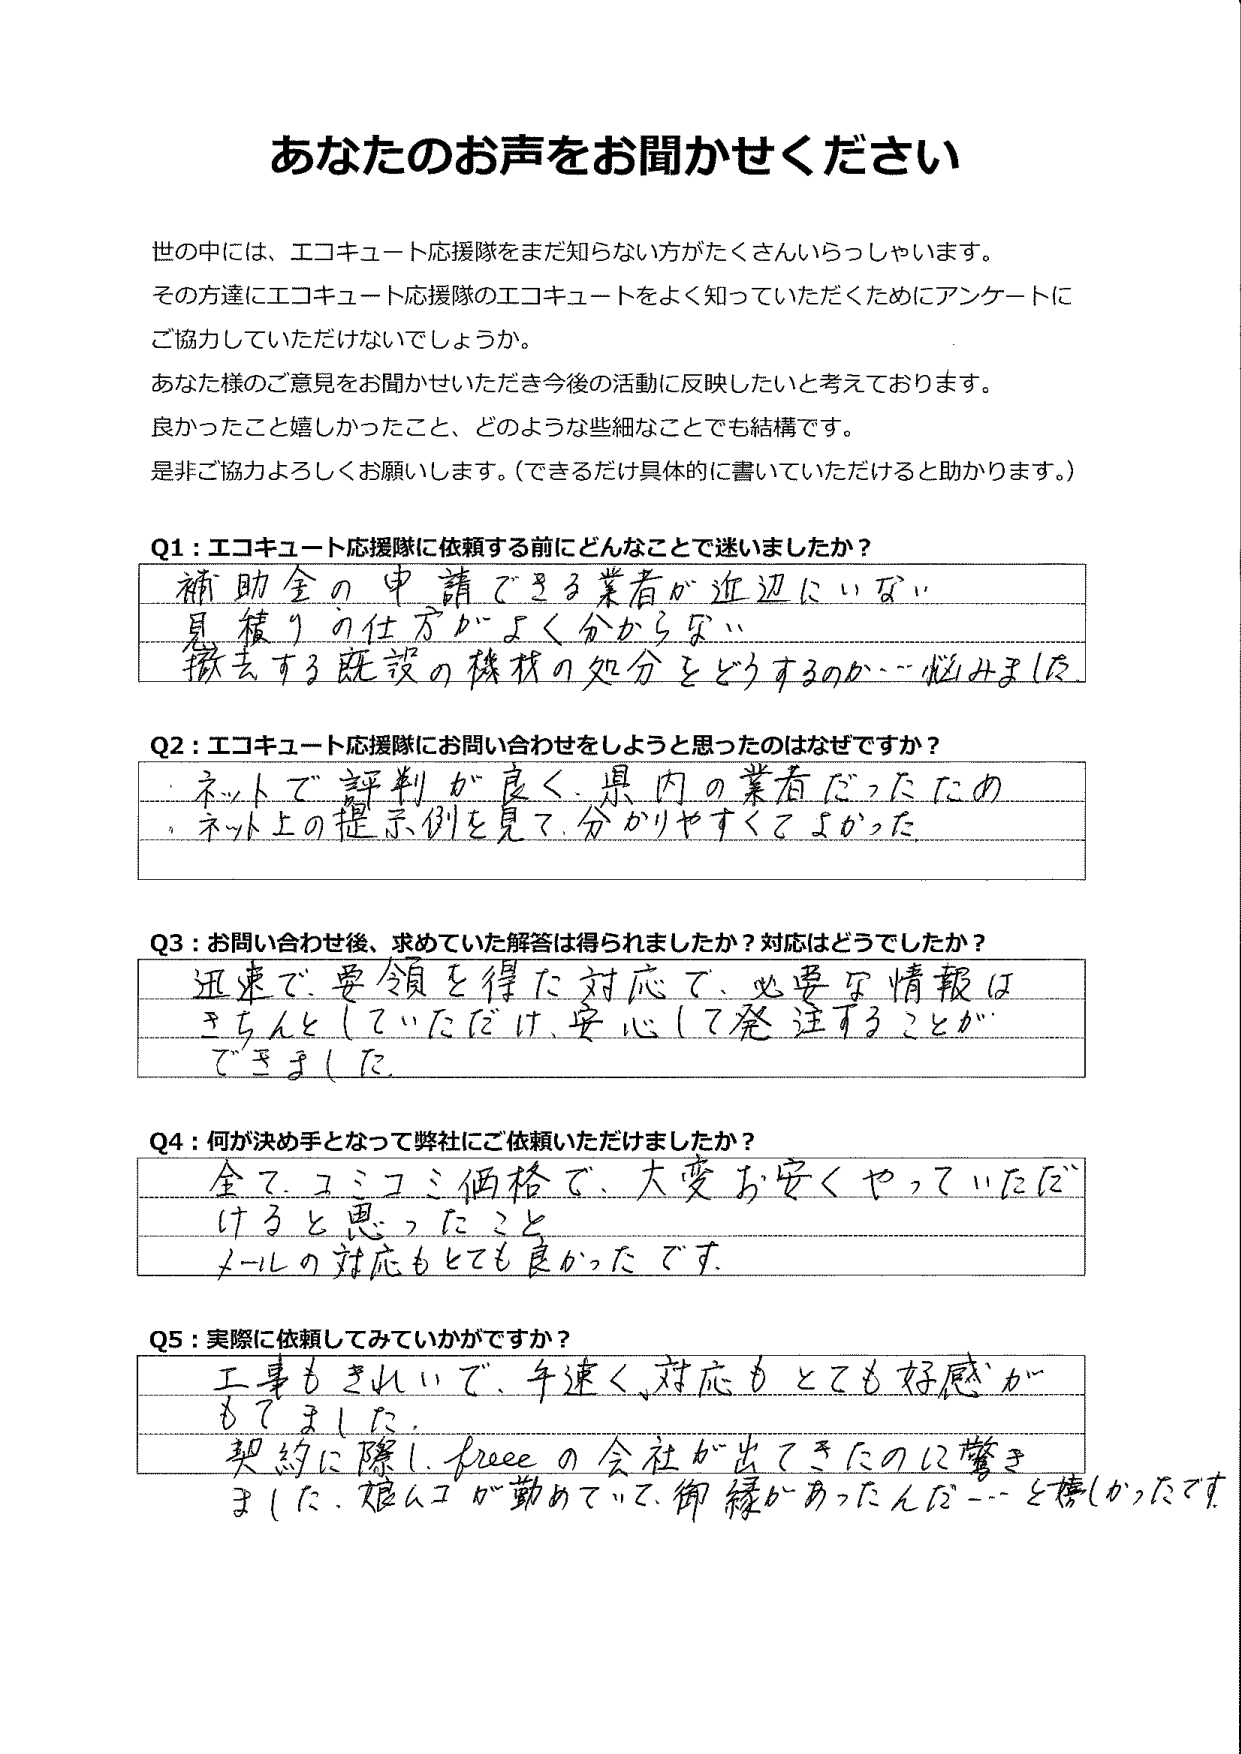 あなたのお声をお聞かせください
世の中には、エコキュート応援隊をまだ知らない方がたくさんいらっしゃいます。
その方達にエコキュート応援隊のエコキュートをよく知っていただくためにアンケートに
ご協力していただけないでしょうか。
あなた様のご意見をお聞かせいただき今後の活動に反映したいと考えております。
良かったこと嬉しかったこと、どのような些細なことでも結構です。
是非ご協力よろしくお願いします。（できるだけ具体的に書いていただけると助かります。）
Q1：エコキュート応援隊に依頼する前にどんなことで迷いましたか？
補助金の申請できる業者が近辺にいない
見積りの仕方がよく分からない
撤去する既設の機材の処分をどうするのか…悩みました.
Q2：エコキュート応援隊にお問い合わせをしようと思ったのはなぜですか？
・ネットで評判が良く、県内の業者だったため
・ネット上の提示例を見て、分かりやすくてよかった
Q3：お問い合わせ後、求めていた解答は得られましたか？対応はどうでしたか？
迅速で、要領を得た対応で、必要な情報は
きちんとしていただけ、安心して発注することが
できました.
Q4：何が決め手となって弊社にご依頼いただけましたか？
全て、コミコミ価格で、大変お安くやっていただ
けると思ったこと
メールの対応もとても良かったです.
Q5：実際に依頼してみていかがですか？
工事もきれいで、手速く、対応もとても好感が
もてました.
契約に際し、freeeの会社が出てきたのに驚き
ました、娘ムコが勤めていて、御縁があったんだ…と嬉しかったです.